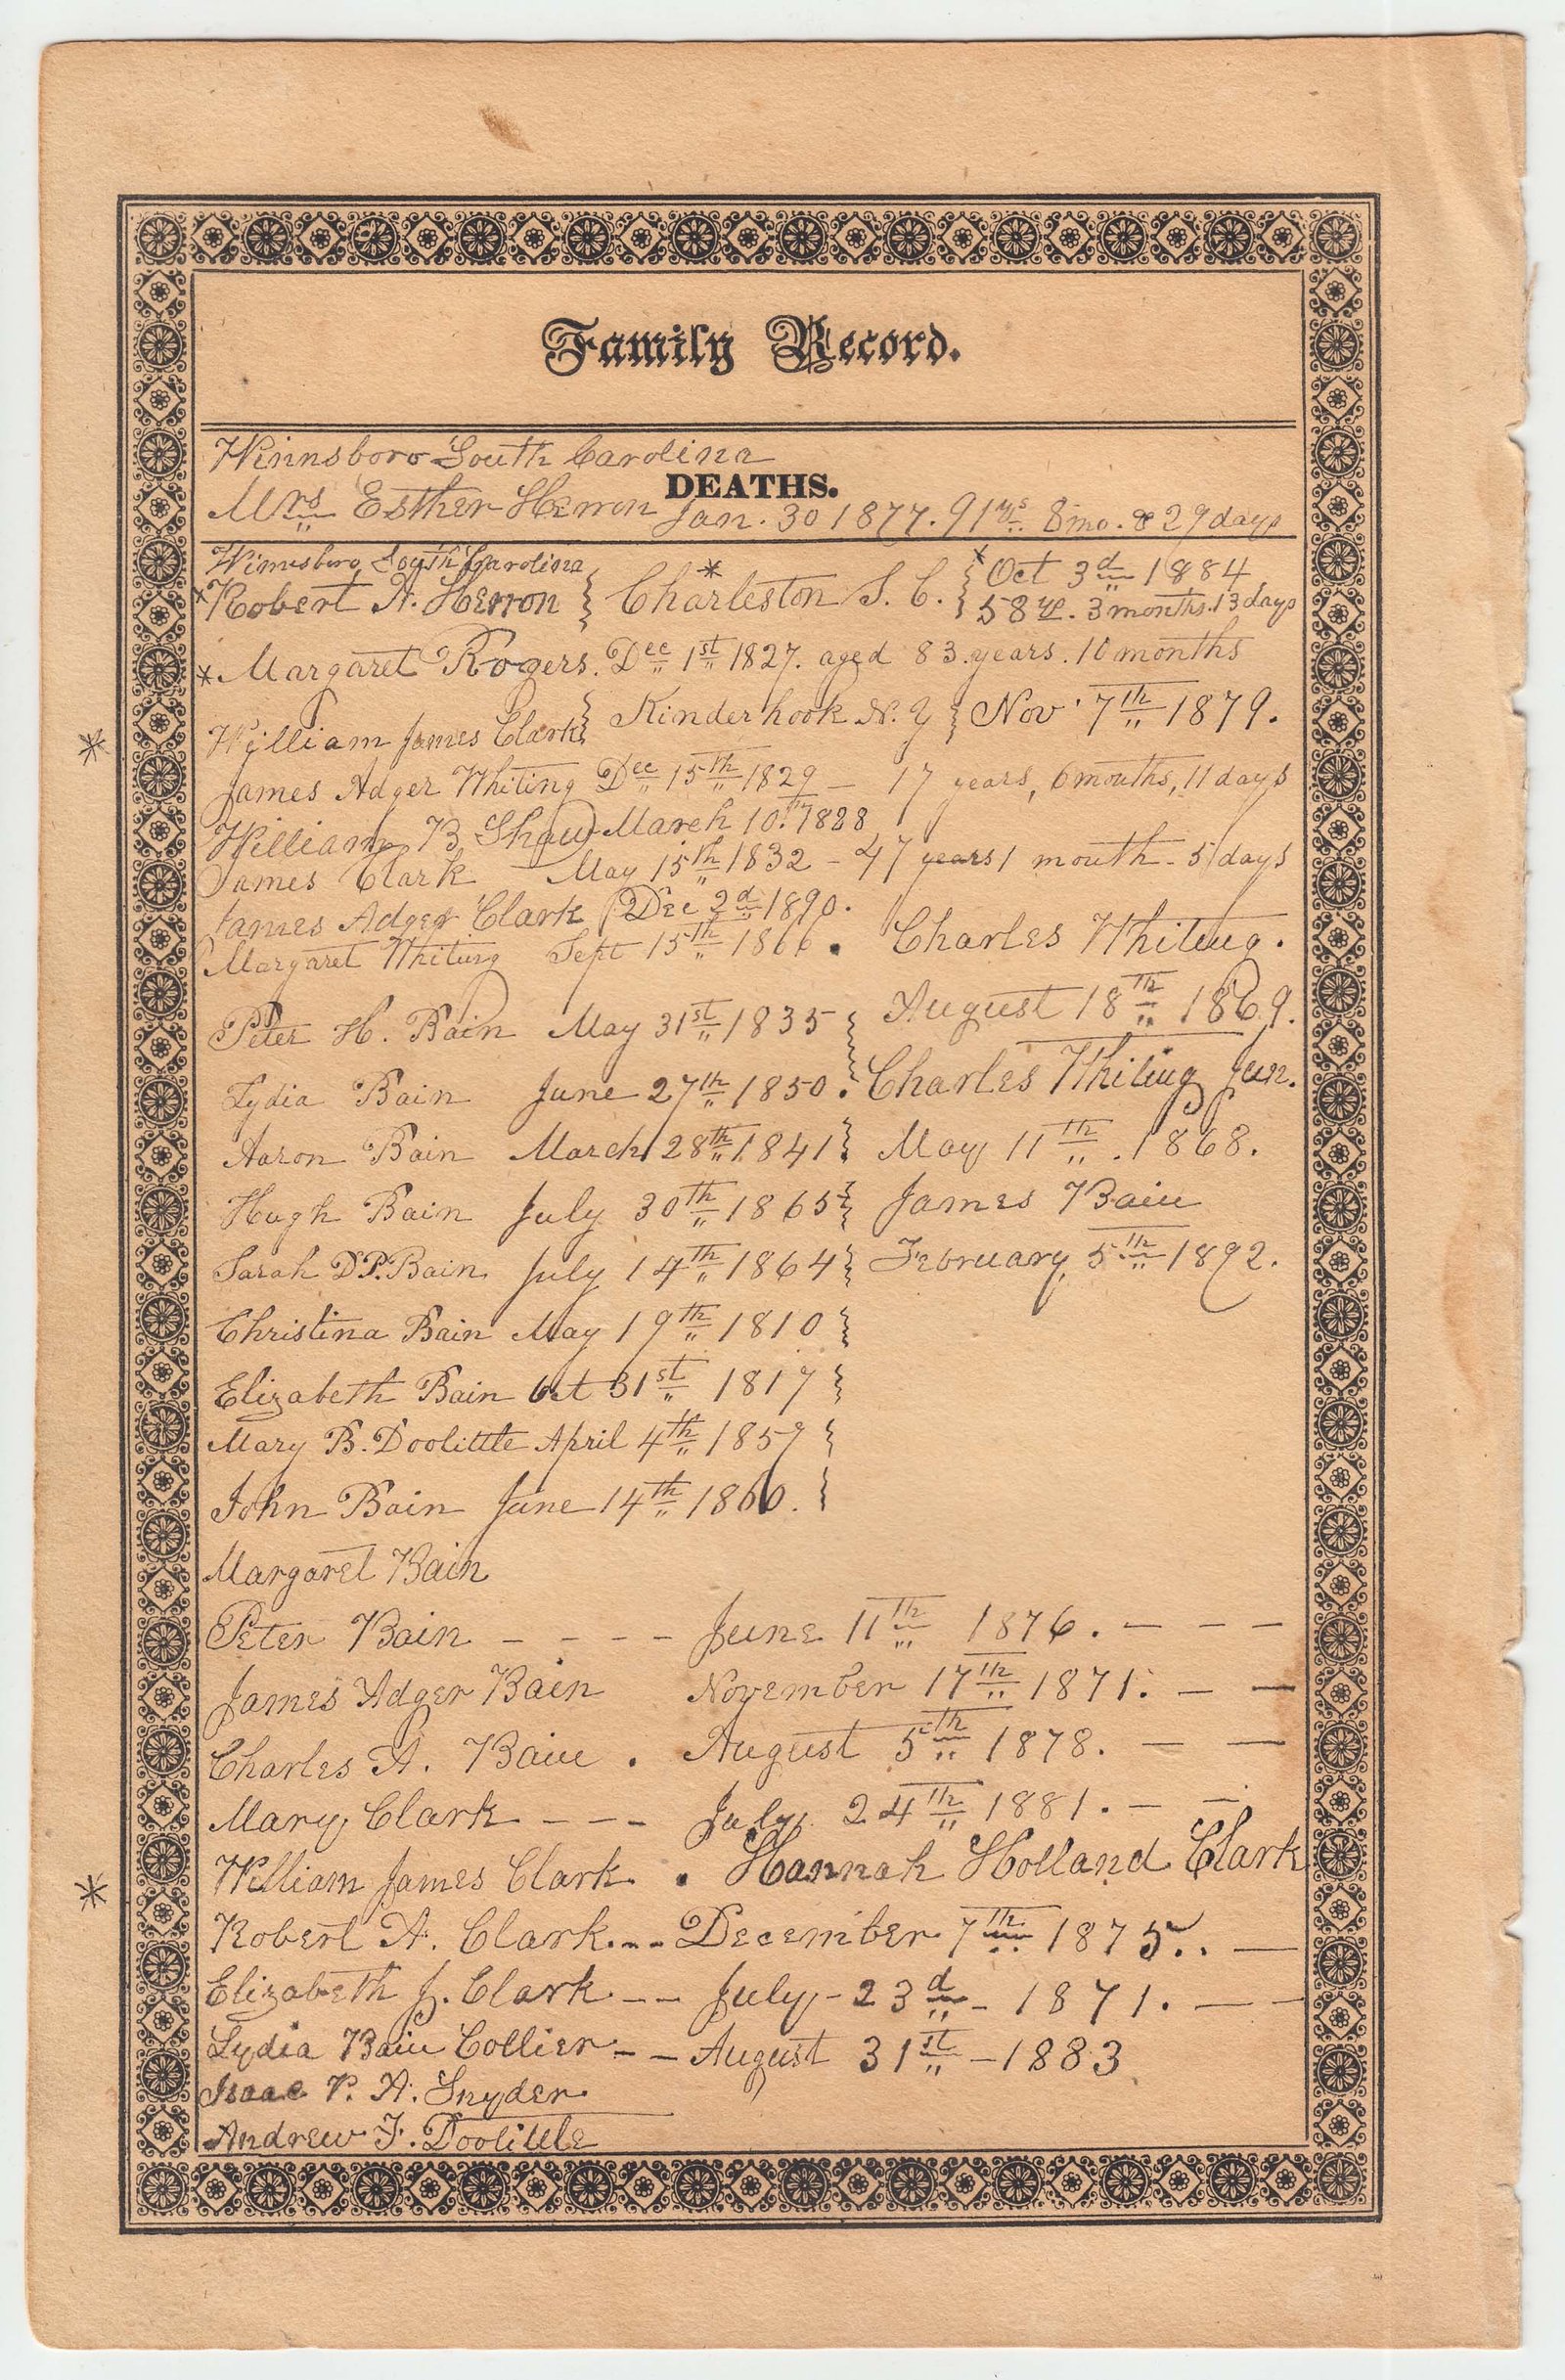 Family Record.
Winnsboro South Carolina
DEATHS.
Mrs Esther Herron Jan. 30 1877. 91 ys 8 mo. & 29 days
Winnsboro South Carolina
*Robert A. Herron } Charleston S. C. * } * Oct 3d 1884
58 yr. 3 months. 13 days
* Margaret Rogers. Dec 1st 1827. aged 83 years. 10 months
* William James Clark } Kinderhook N. Y } Nov 7th 1879.
James Adger Whiting Dec 15th 1829 — 17 years, 6 months, 11 days
William B Shaw March 10th 1828
James Clark May 15th 1832 - 47 years 1 month - 5 days
James Adger Clark Dec 2d 1890.
Margaret Whiting Sept 15th 1866. Charles Whiting.
Peter H. Bain May 31st 1835 } August 18th 1869.
Lydia Bain June 27th 1850. Charles Whiting Jun.
Aaron Bain March 28th 1841 } May 11th. 1868.
Hugh Bain July 30th 1865 } James Bain
Sarah D.P. Bain July 14th 1864 } February 5th 1892.
Christina Bain May 19th 1810 }
Elizabeth Bain Oct 31st 1817 }
Mary B. Doolittle April 4th 1857 }
John Bain June 14th 1860. }
Margaret Bain
Peter Bain - - - - June 11th 1876. - - -
James Adger Bain November 17th 1871. - -
Charles A. Bain . August 5th 1878. - -
Mary Clark - - - July 24th 1881. - -
* William James Clark . Hannah Holland Clark
Robert A. Clark... December 7th 1875.. —
Elizabeth J. Clark -- July - 23d - 1871. — -
Lydia Bain Collier - - August 31st - 1883
Isaac V. A. Snyder
Andrew F. Doolittle